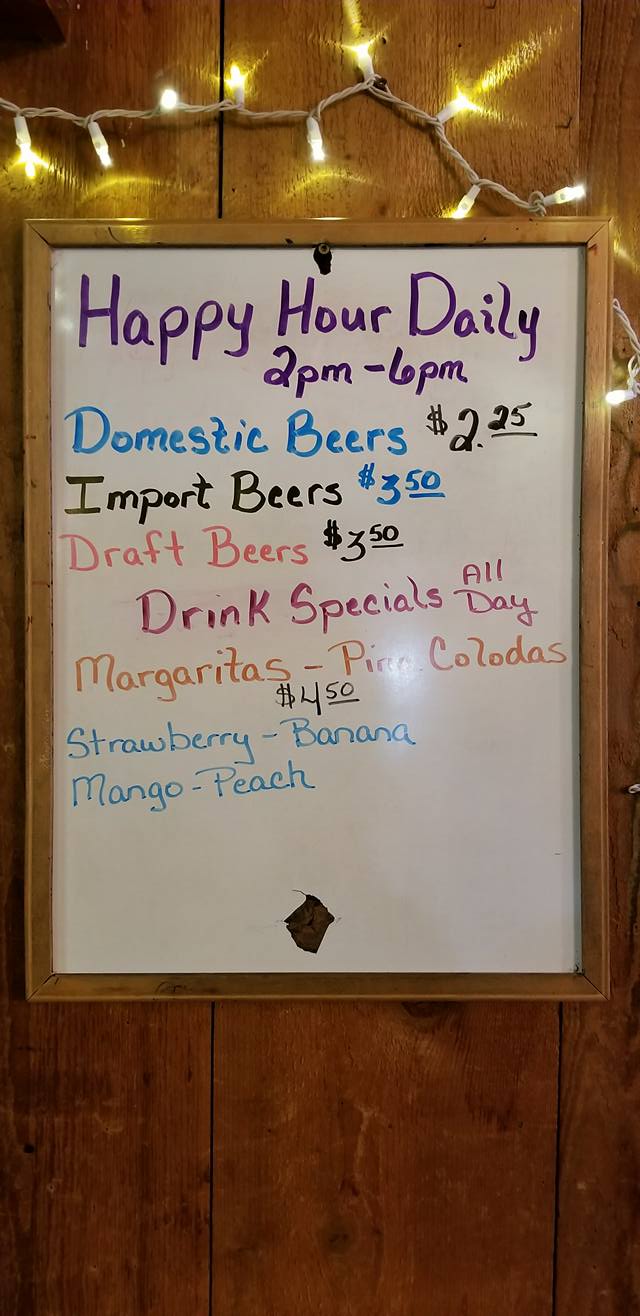 Happy Hour Daily
2pm - 6pm
Domestic Beers $2.25
Import Beers $3 50
Draft Beers $3 50
Drink Specials All Day
Margaritas - Colodas
$4 50
Strawberry - Banana
Mango - Peach